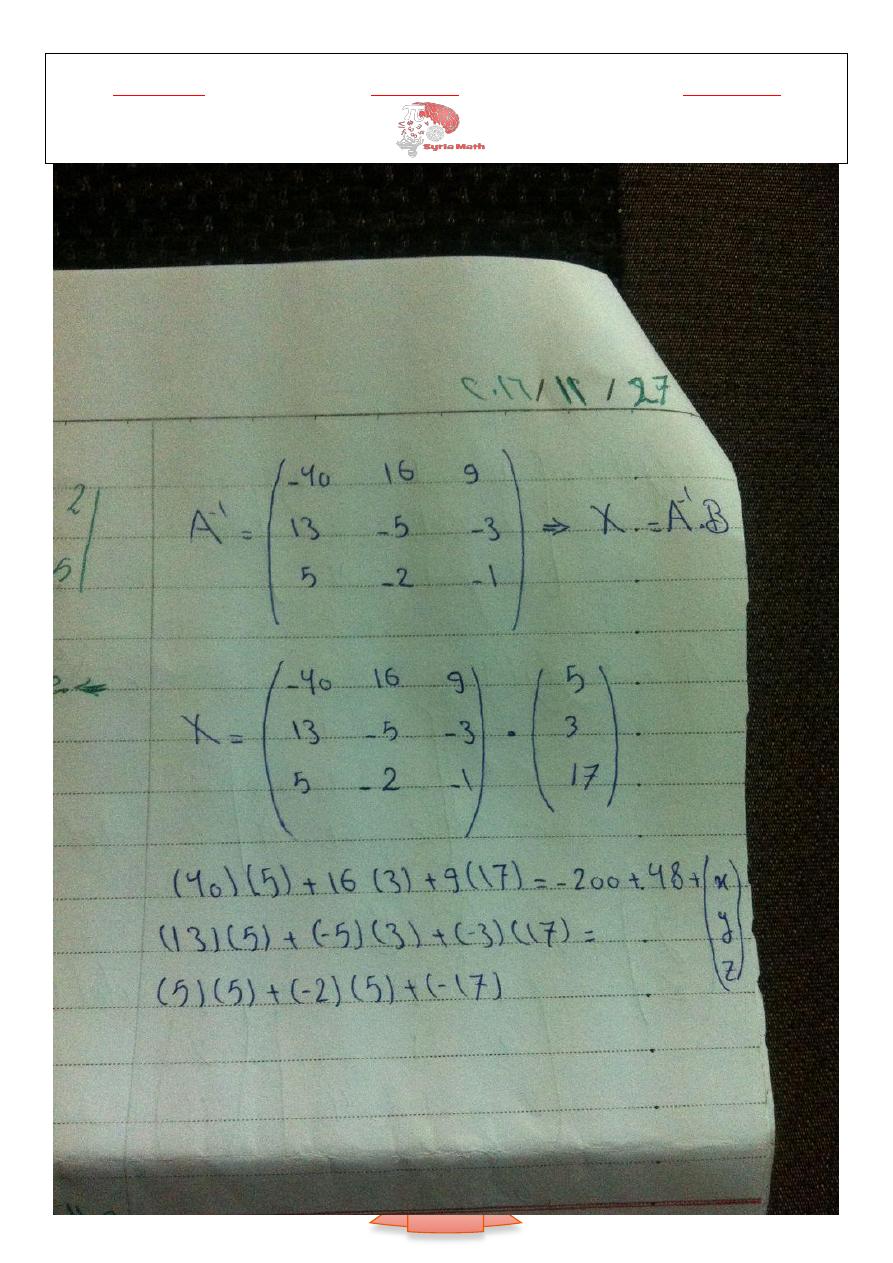 Syria Math
27 / 11 / ٢٠١٦
2
5
A⁻¹ = ( -40 16 9
13 -5 -3
5 -2 -1 ) ⇒ X = A⁻¹.B
X = ( -40 16 9
13 -5 -3
5 -2 -1 ) . ( 5
3
17 )
(40)(5) + 16 (3) + 9(17) = -200 + 48 + ( x
(13)(5) + (-5)(3) + (-3)(17) = y
(5)(5) + (-2)(5) + (-17) z )